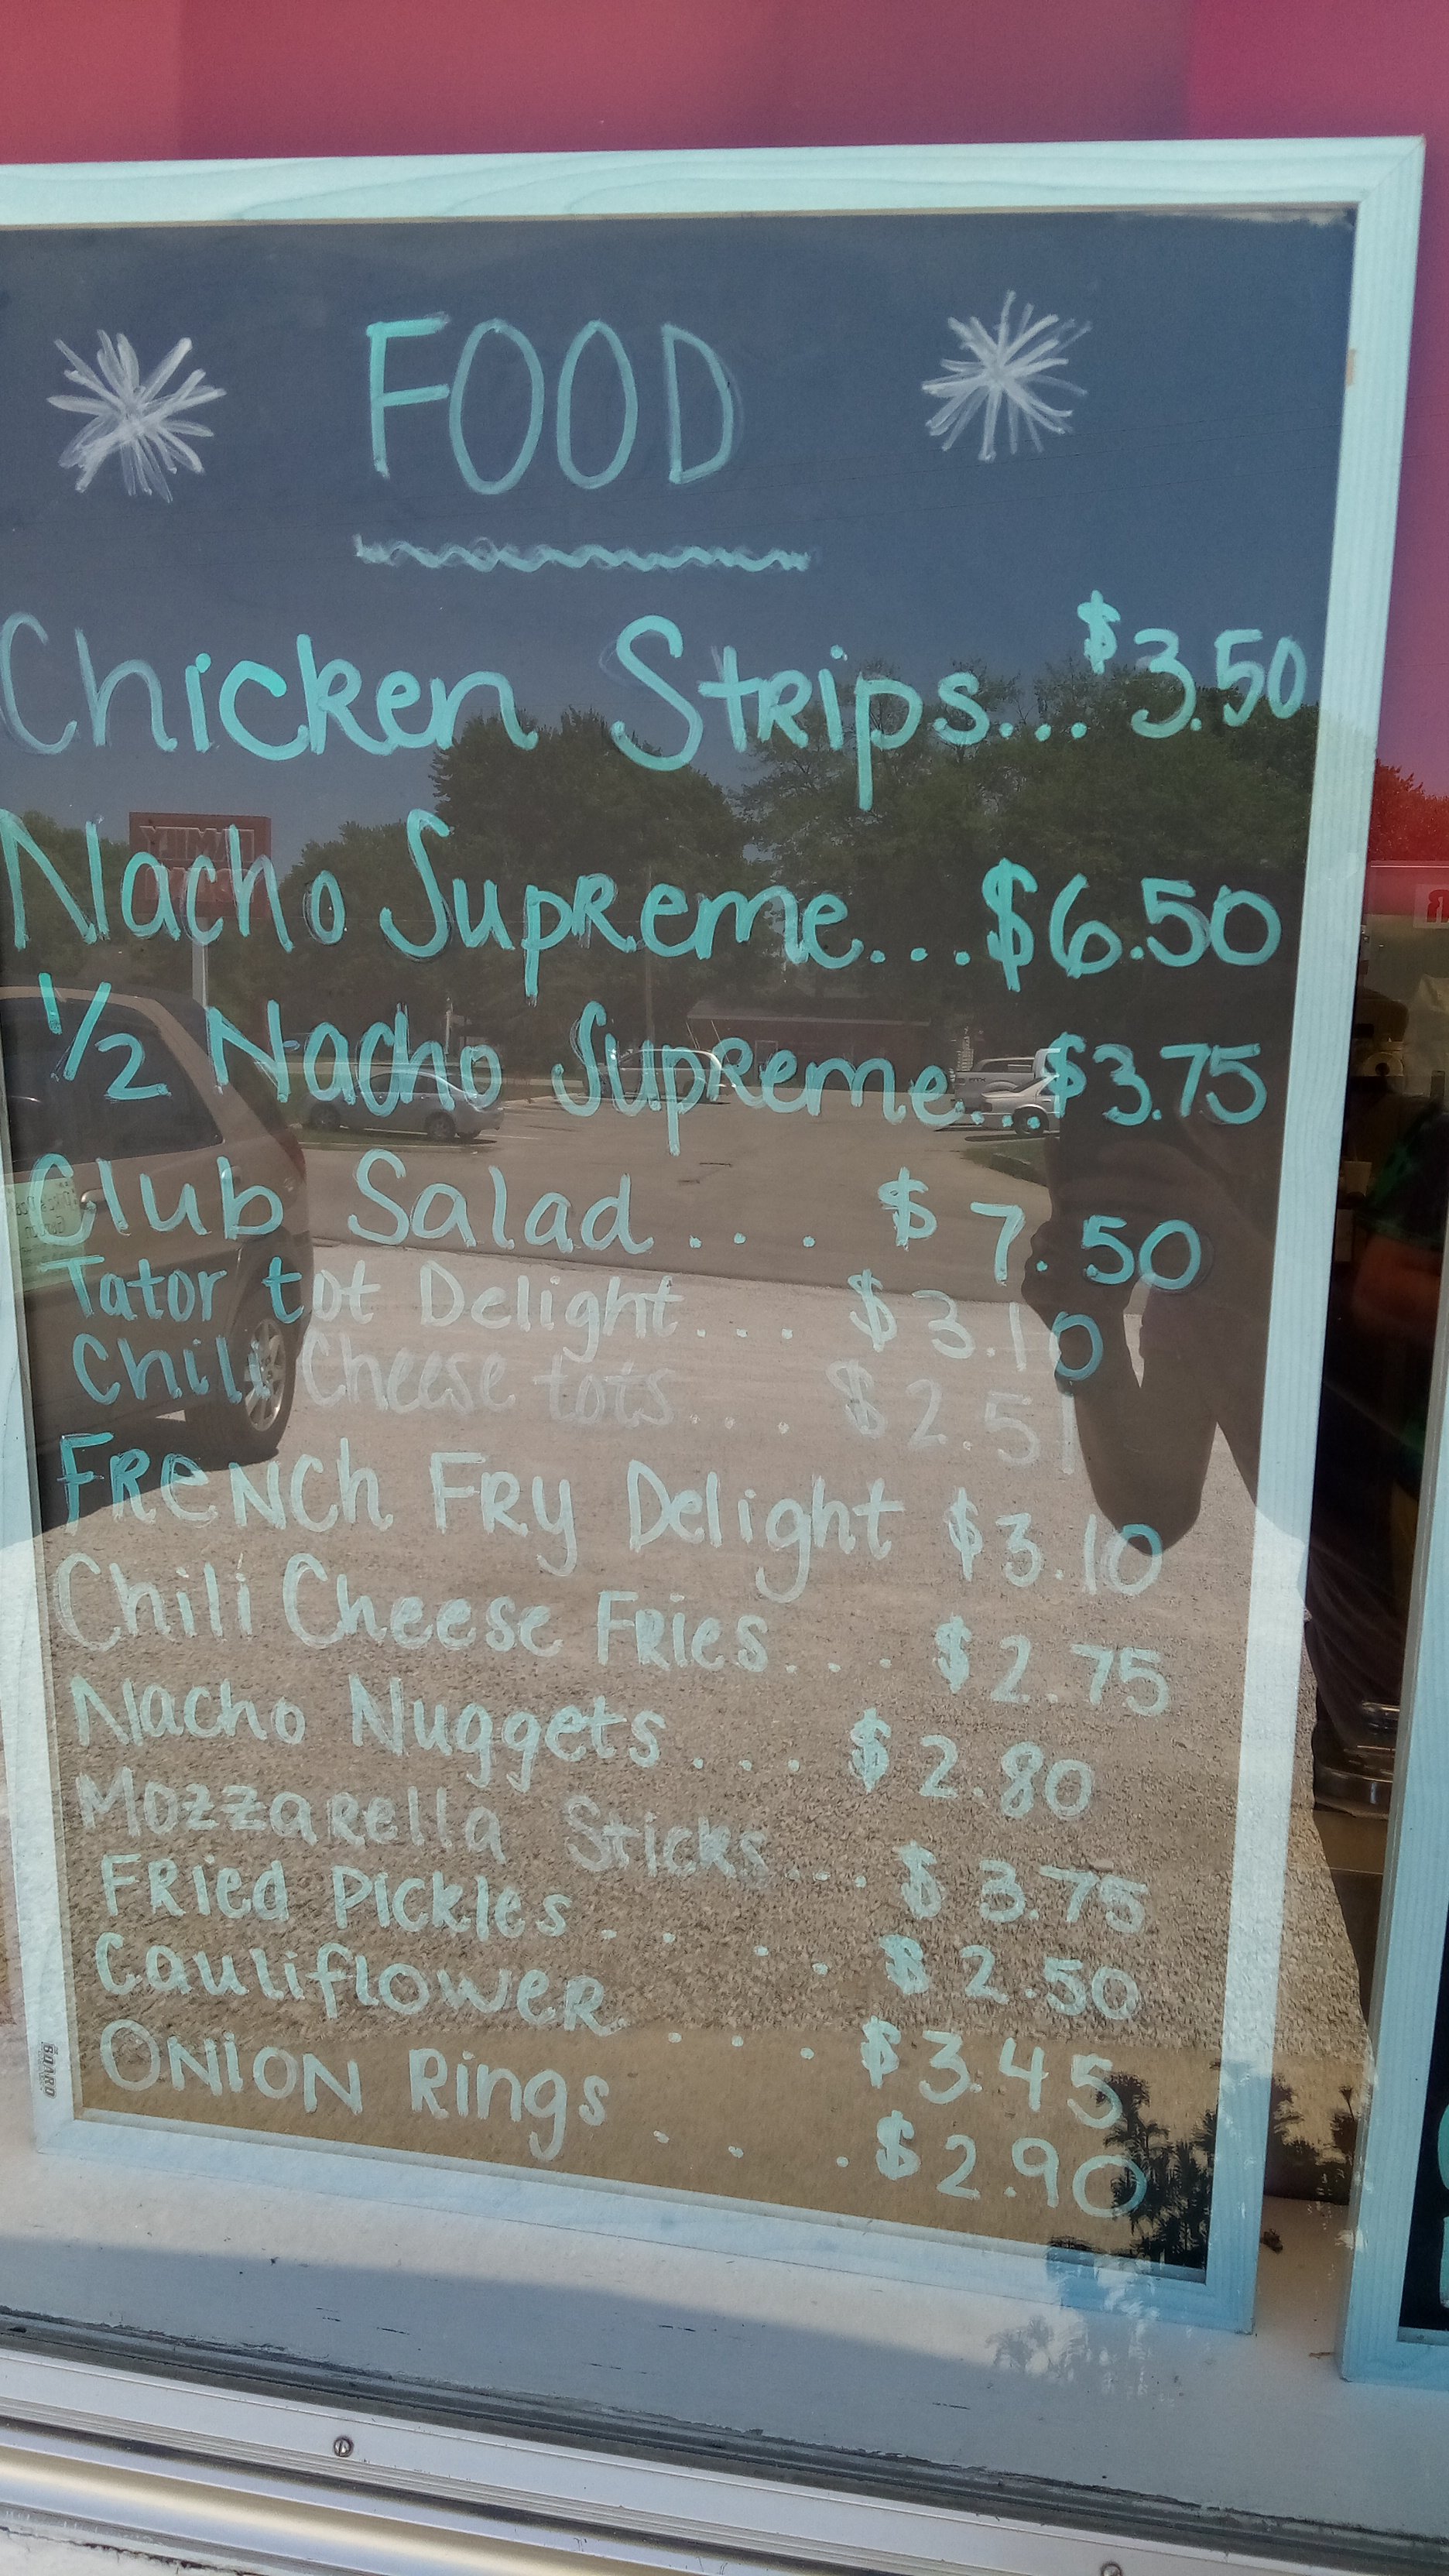 FOOD
Chicken Strips... $3.50
Nacho Supreme... $6.50
1/2 Nacho Supreme... $3.75
Club Salad.... $7.50
Tator tot Delight.... $3.10
Chili Cheese tots.... $2.51
FRENCH FRY Delight $3.10
Chili Cheese Fries.... $2.75
Nacho Nuggets.... $2.80
Mozzarella Sticks... $3.75
Fried Pickles..... $2.50
Cauliflower.... $3.45
ONION Rings.... $2.90
BOARD